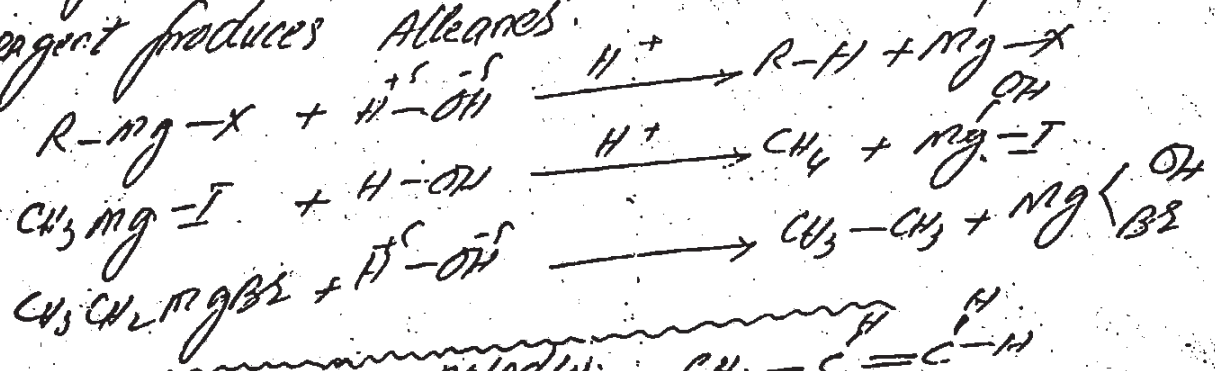 produces Alkanes.
R-Mg-X + H^{+δ}-OH^{-δ} —H⁺→ R-H + Mg-X
OH
CH₃Mg-I + H-OH —H⁺→ CH₄ + Mg-I
CH₃CH₂MgBr + H^{+δ}-OH^{-δ} → CH₃-CH₃ + Mg<OH Br
H H
C=C-H